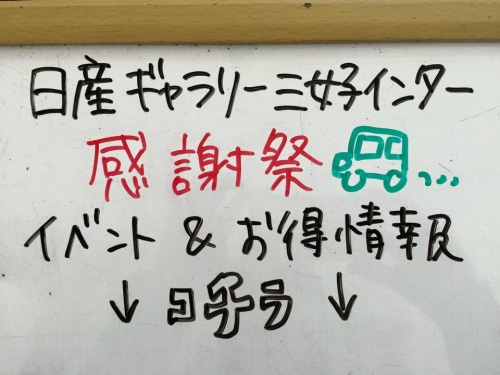 日産ギャラリー三好インター
感謝祭
イベント & お得情報
↓ コチラ ↓